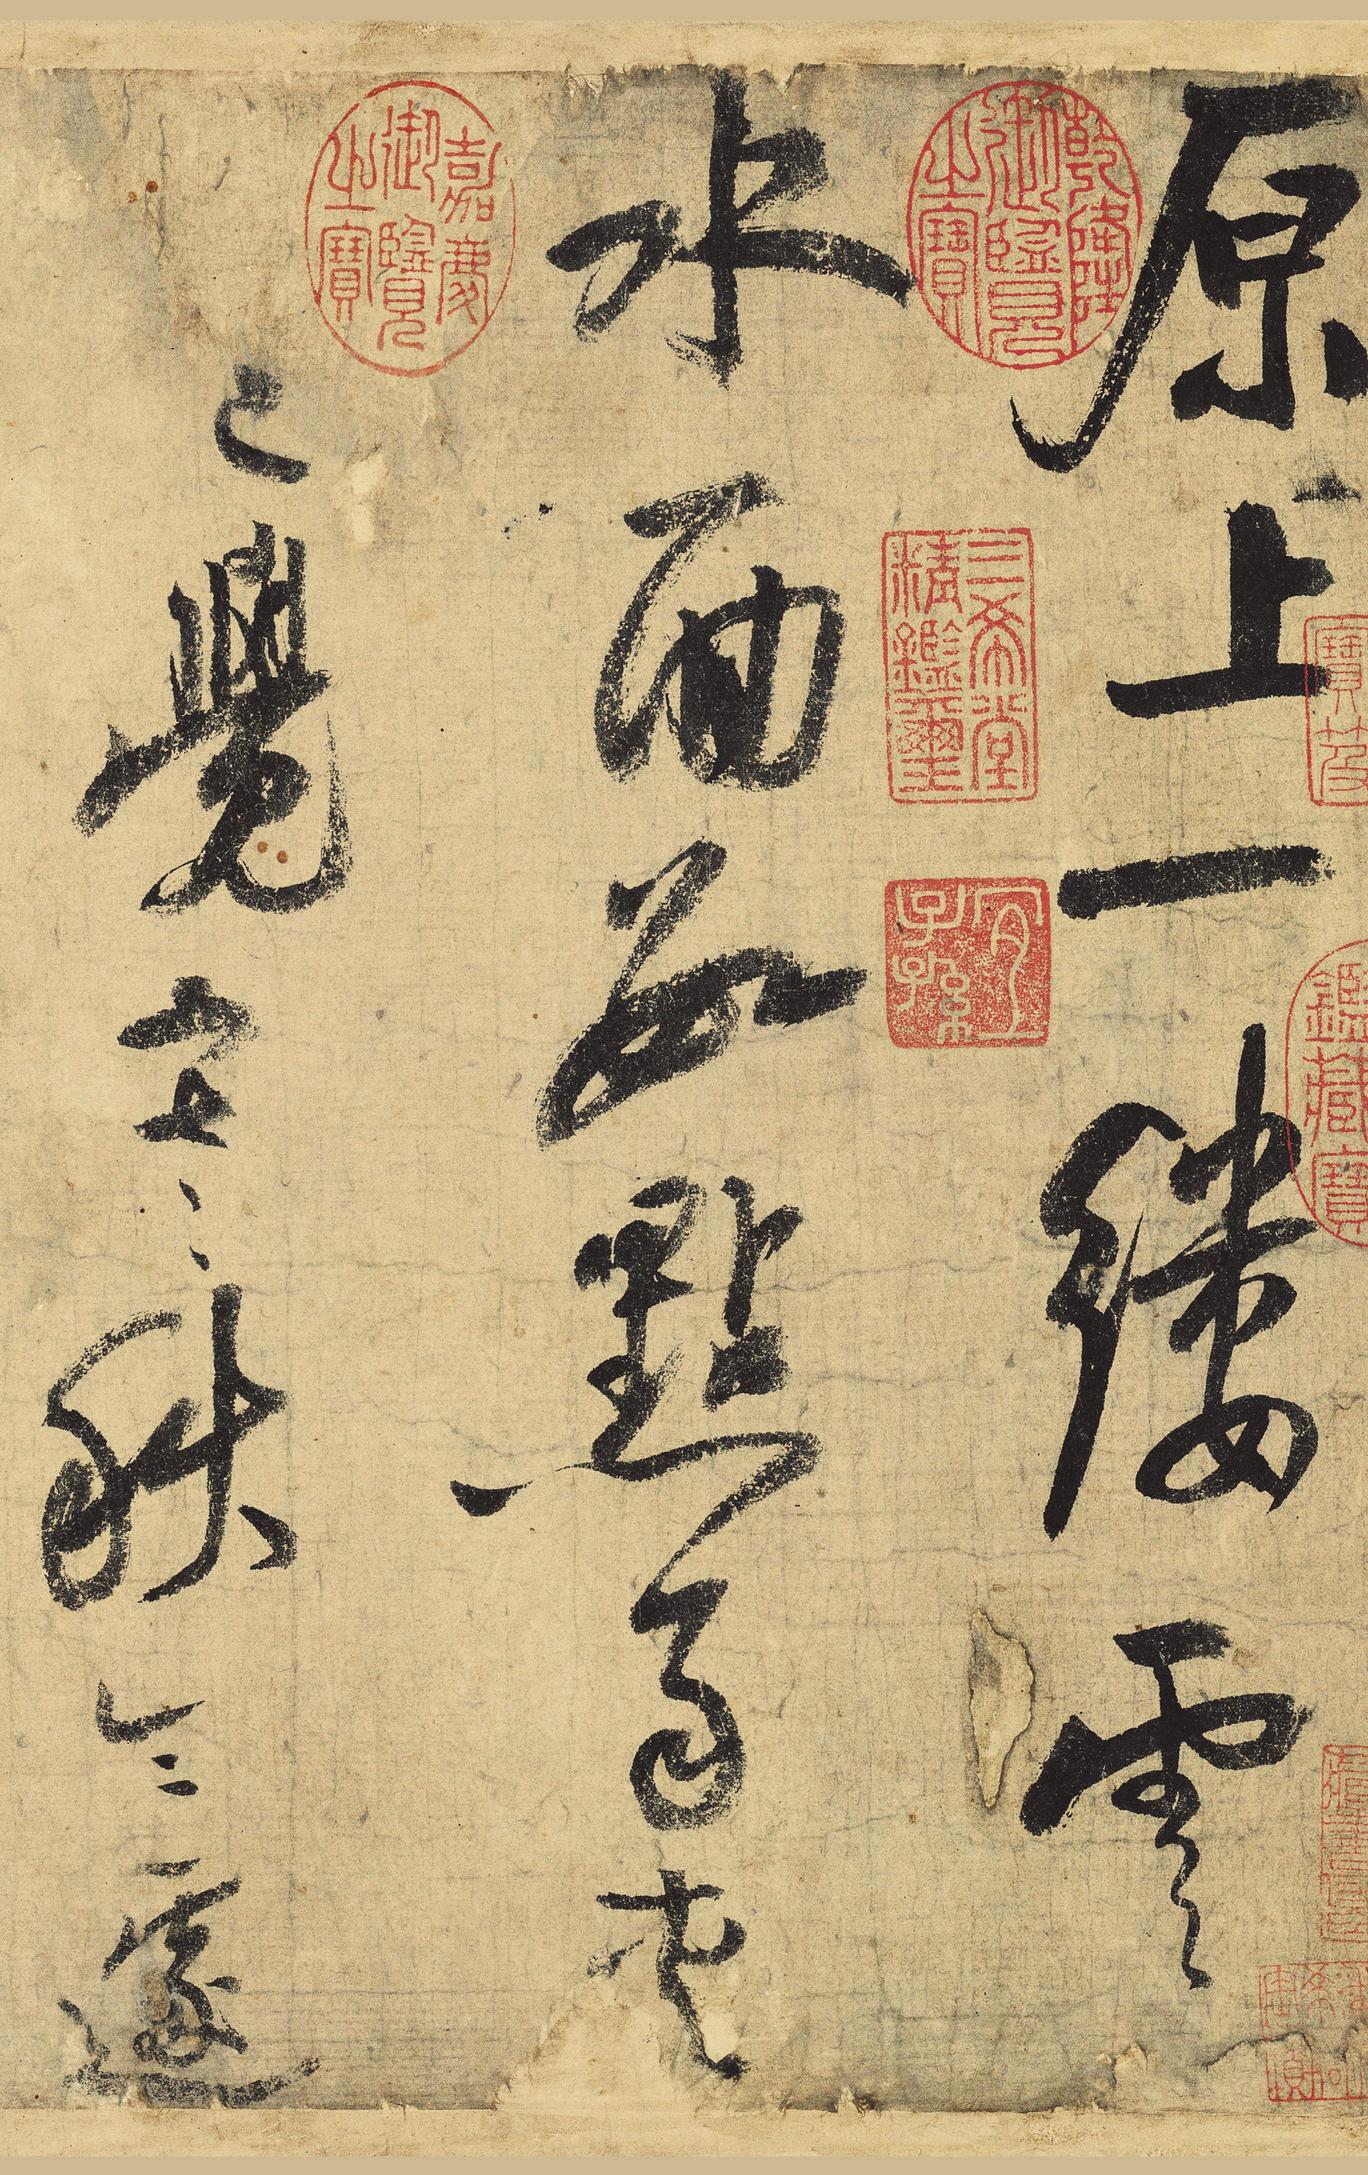 原上一縷雲
水面數點雨
已覺寒秋令遽
乾隆御覽之寶
三希堂精鑑璽
宜子孫
嘉慶御覽之寶